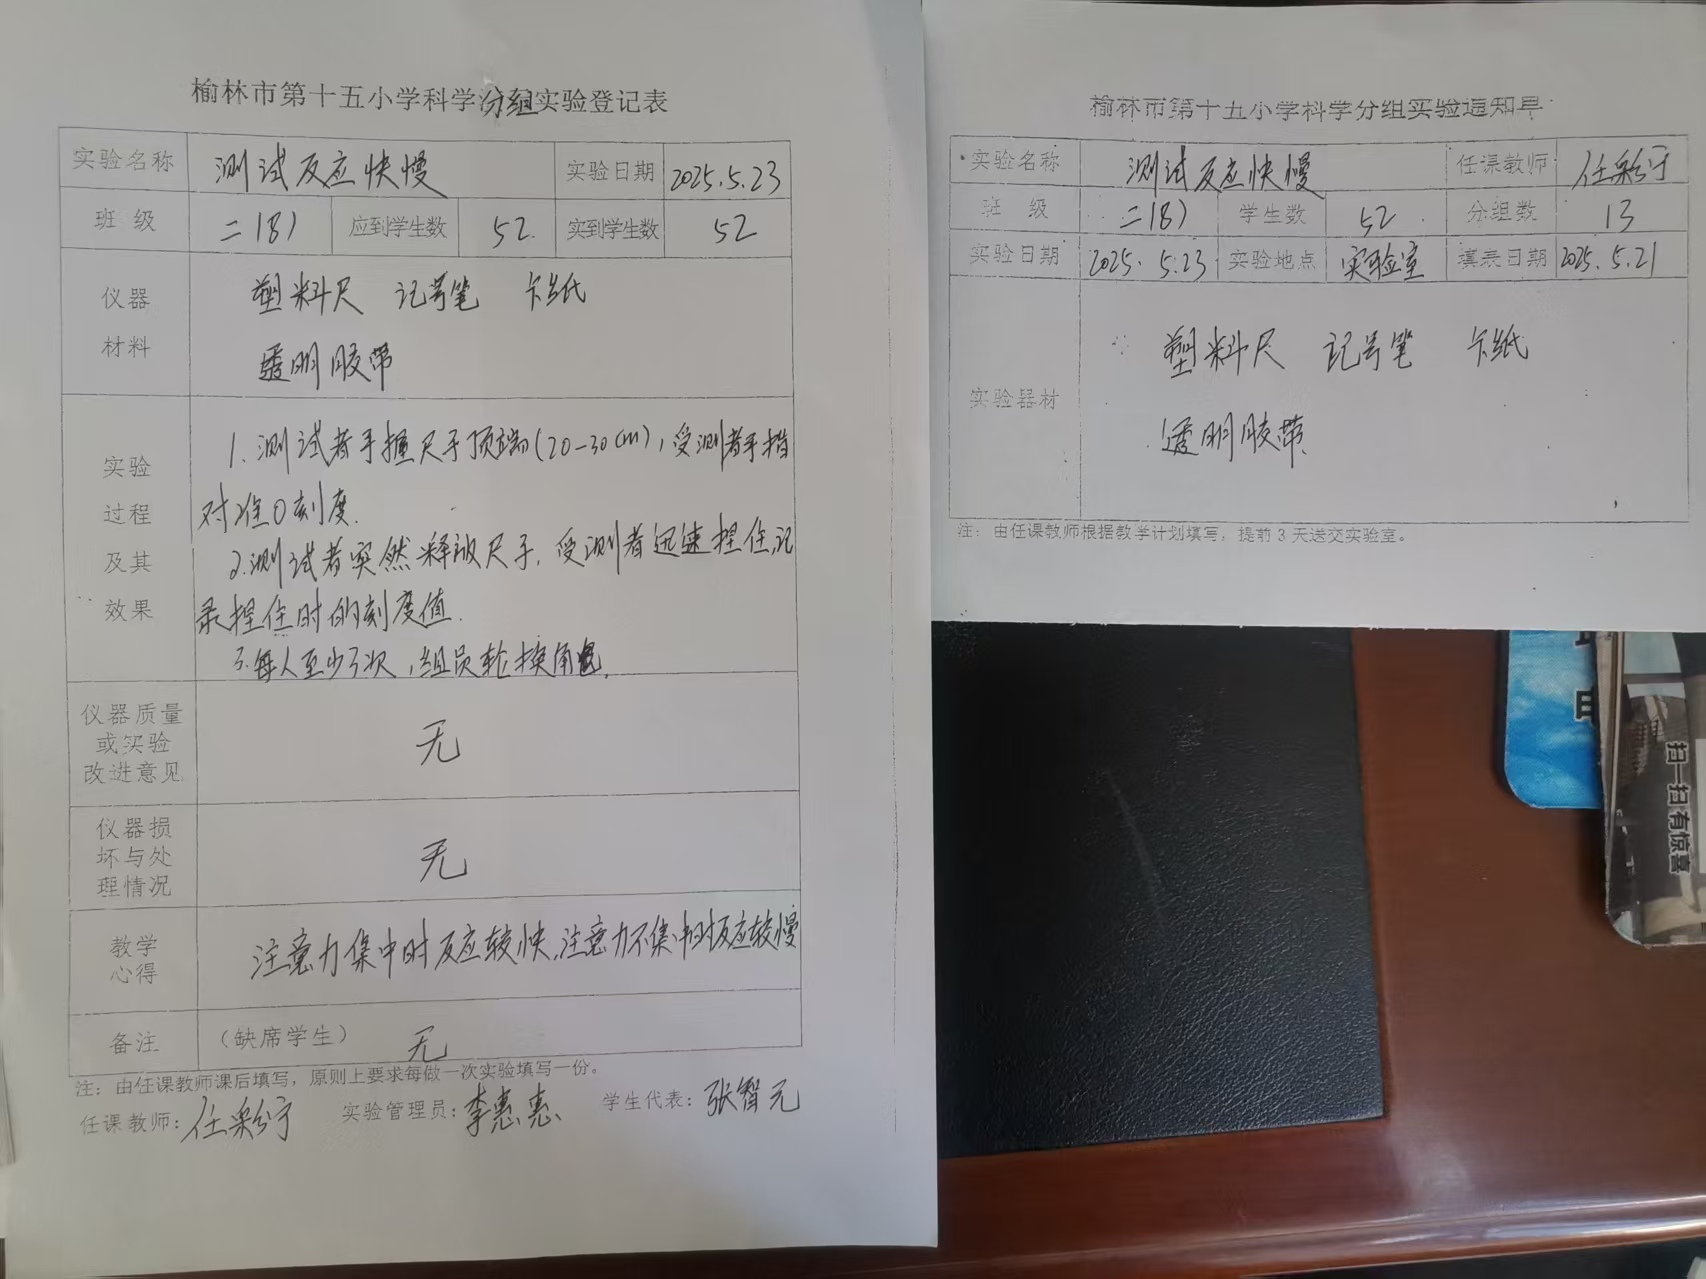 榆林市第十五小学科学分组实验登记表
实验名称 测试反应快慢 实验日期 2025.5.23
班 级 二(8) 应到学生数 52 实到学生数 52
仪器
材料
塑料尺 记号笔 卡纸
透明胶带
实验
过程
及其
效果
1.测试者手握尺子顶端(20-30cm),受测者手指
对准0刻度.
2.测试者突然释放尺子,受测者迅速捏住记
录捏住时的刻度值.
3.每人至少3次,组员轮换角色.
仪器质量
或实验
改进意见
无
仪器损
坏与处
理情况
无
教学
心得
注意力集中时反应较快,注意力不集中时反应较慢
备注 (缺席学生) 无
注:由任课教师课后填写,原则上要求每做一次实验填写一份。
任课教师: 任彩宁 实验管理员:李惠惠 学生代表:张智元
榆林市第十五小学科学分组实验通知单
实验名称 测试反应快慢 任课教师 任彩宁
班 级 二(8) 学生数 52 分组数 13
实验日期 2025.5.23 实验地点 实验室 填表日期 2025.5.21
实验器材
塑料尺 记号笔 卡纸
透明胶带
注:由任课教师根据教学计划填写,提前3天送交实验室。
扫一扫有惊喜